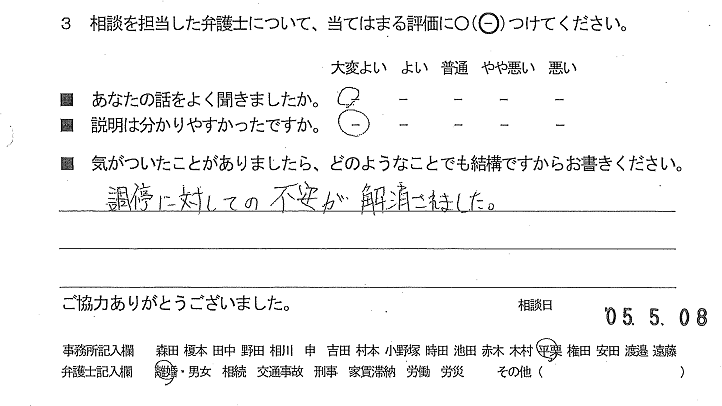 3　相談を担当した弁護士について、当てはまる評価に○(-)つけてください。
大変よい　よい　普通　やや悪い　悪い
■　あなたの話をよく聞きましたか。　-　-　-　-　-
■　説明は分かりやすかったですか。　-　-　-　-　-
■　気がついたことがありましたら、どのようなことでも結構ですからお書きください。
調停に対しての不安が解消されました。
ご協力ありがとうございました。　相談日　'05. 5. 08
事務所記入欄　森田 榎本 田中 野田 相川　申　吉田 村本 小野塚 時田 池田 赤木 木村 平栗 権田 安田 渡邉 遠藤
弁護士記入欄　離婚・男女　相続　交通事故　刑事　家賃滞納　労働　労災　その他（　）